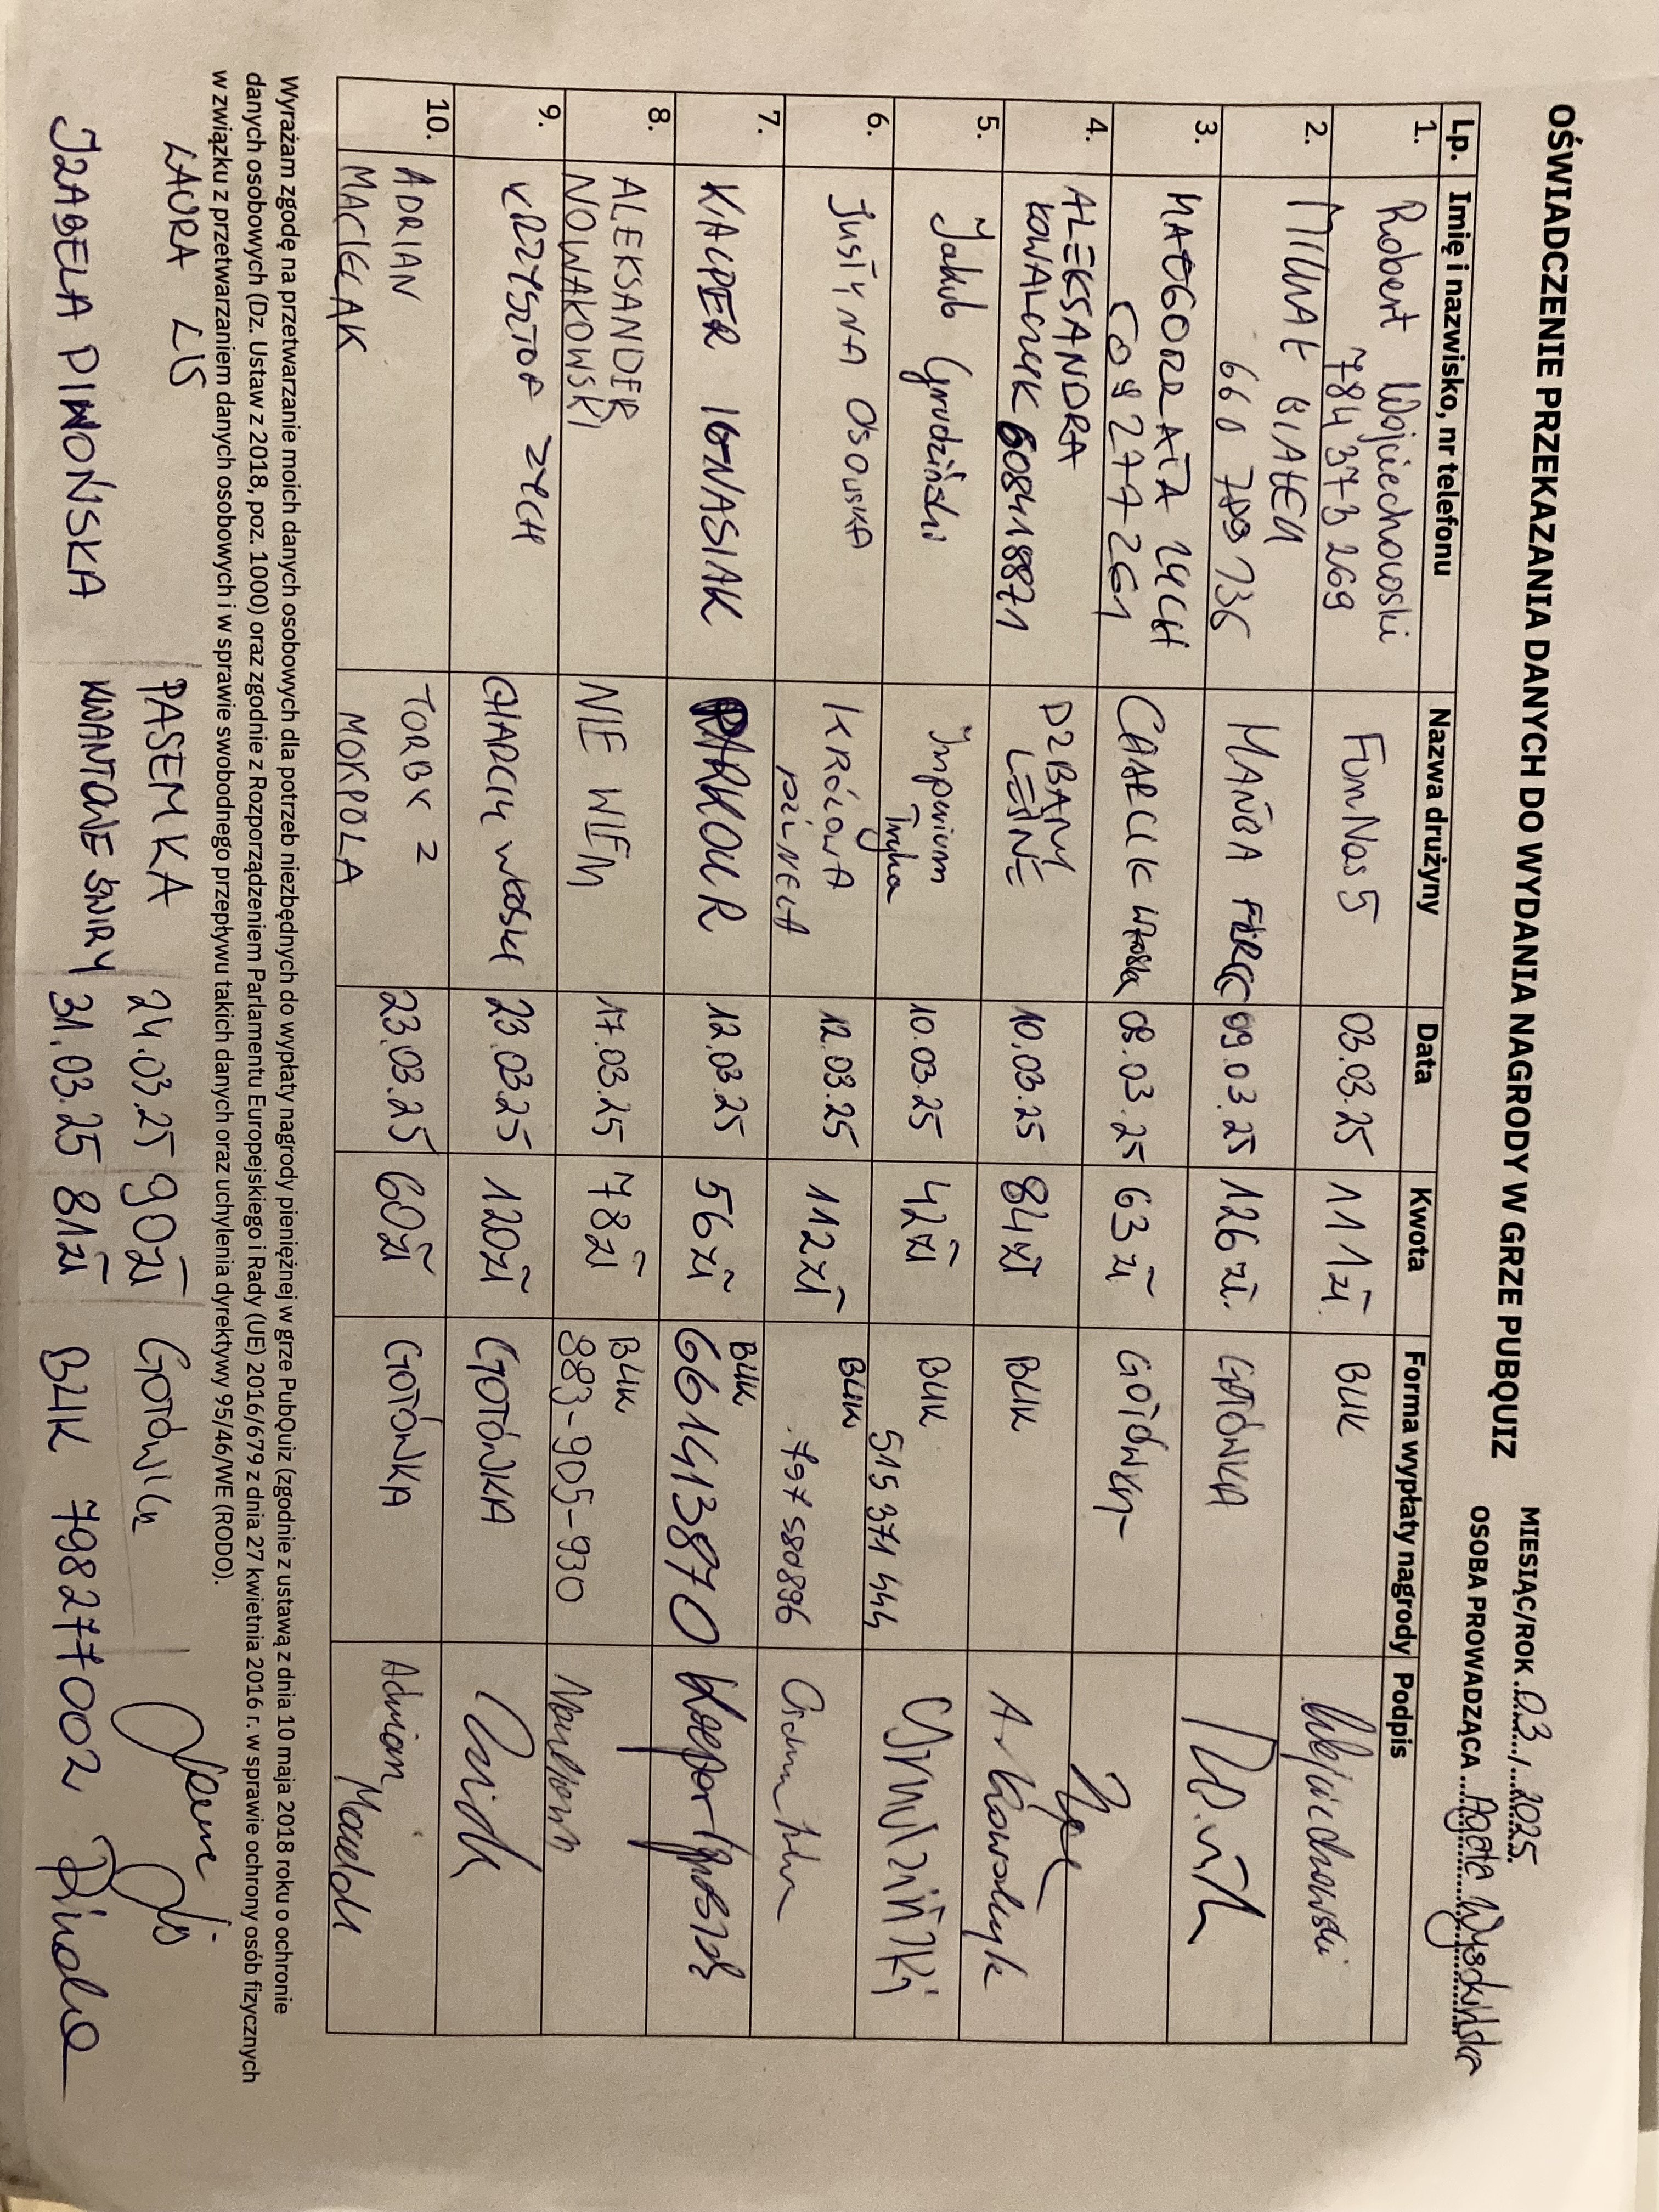 OŚWIADCZENIE PRZEKAZANIA DANYCH DO WYDANIA NAGRODY W GRZE PUBQUIZ
MIESIĄC/ROK 03 / 2025
OSOBA PROWADZĄCA Agata Wysokińska
Lp. Imię i nazwisko, nr telefonu Nazwa drużyny Data Kwota Forma wypłaty nagrody Podpis
1. Robert Wojciechowski FunNas5 03.03.25 111zł. BLIK Wojciechowski
784 373 269
2. MICHAŁ BIAŁEK MAŃBA 09.03.25 126 zł. GOTÓWKA
660 789 136
3. MAŁGORZATA ZYCH CHARCIK WŁOSKI 09.03.25 63 zł GOTÓWKA
609 277 261
4. ALEKSANDRA DZBANY 10.03.25 84 zł BLIK A. Kowalczyk
KOWALCZYK 608418871 LEŚNE
5. Jakub Grudziński Imperium 10.03.25 42 zł BLIK Grudziński
Tryka 515 371 444
6. JUSTYNA OSOWSKA KRÓLOWA 12.03.25 112 zł BLIK
PÓŁNECA 797 580896
7. KACPER IGNASIAK PARKOUR 12.03.25 56 zł BLIK Kacper Ignasiak
661413870
8. ALEKSANDER NIE WIEM 17.03.25 78 zł BLIK
NOWAKOWSKI 883-905-930
9. KRZYSZTOF ZYCH CHARCIK WŁOSKI 23.03.25 120zł GOTÓWKA
10. ADRIAN TORBY Z 23.03.25 60zł GOTÓWKA Adrian
MACIEJAK MOKPOLA
Wyrażam zgodę na przetwarzanie moich danych osobowych dla potrzeb niezbędnych do wypłaty nagrody pieniężnej w grze PubQuiz (zgodnie z ustawą z dnia 10 maja 2018 roku o ochronie
danych osobowych (Dz. Ustaw z 2018, poz. 1000) oraz zgodnie z Rozporządzeniem Parlamentu Europejskiego i Rady (UE) 2016/679 z dnia 27 kwietnia 2016 r. w sprawie ochrony osób fizycznych
w związku z przetwarzaniem danych osobowych i w sprawie swobodnego przepływu takich danych oraz uchylenia dyrektywy 95/46/WE (RODO).
LAURA LIS PASEMKA 24.03.25 90zł GOTÓWKA
IZABELA PIWOŃSKA KWANTOWE ŚWIRY 31.03.25 81zł BLIK 798277002